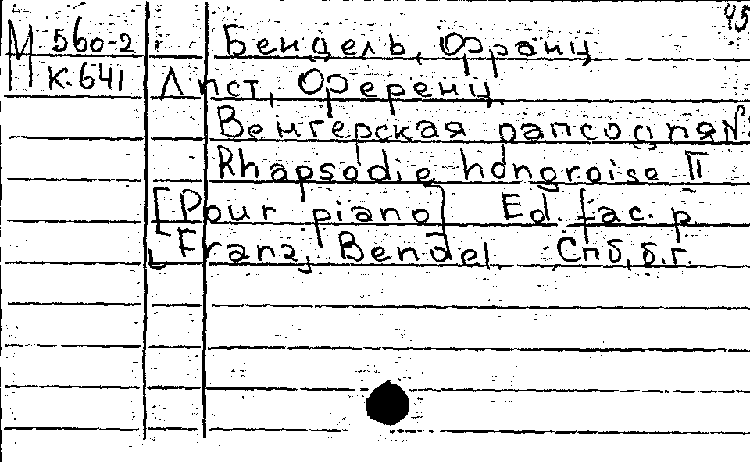 45
М 560-2 Бендель, Франц
К.641 Лист, Ференц.
Венгерская рапсодия №
Rhapsodie hongroise II
[Pour piano] Ed. fac. p.
[Franz, Bendel. Спб, б.г.